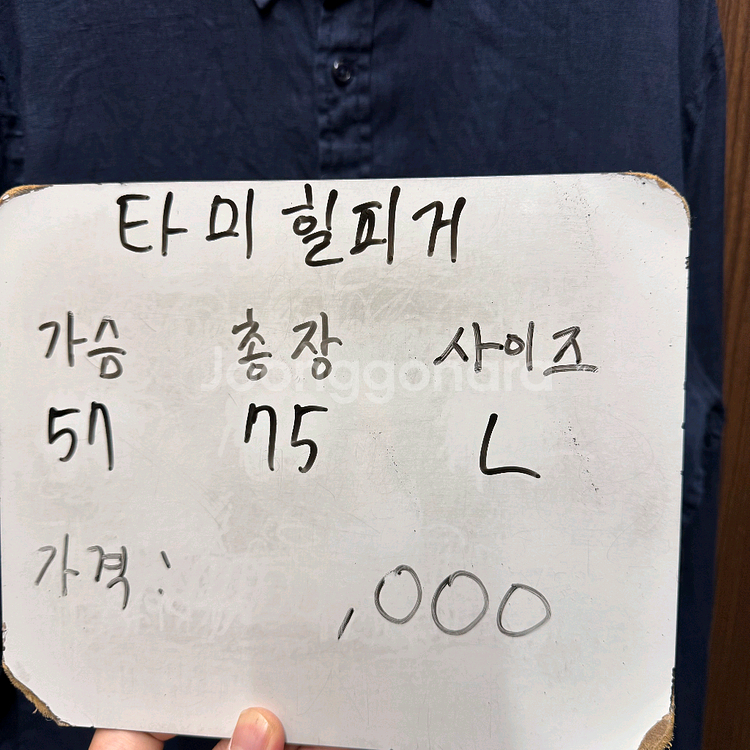 타미힐피거
가슴 총장 사이즈
Joonggonara
57 75 L
가격: ,000